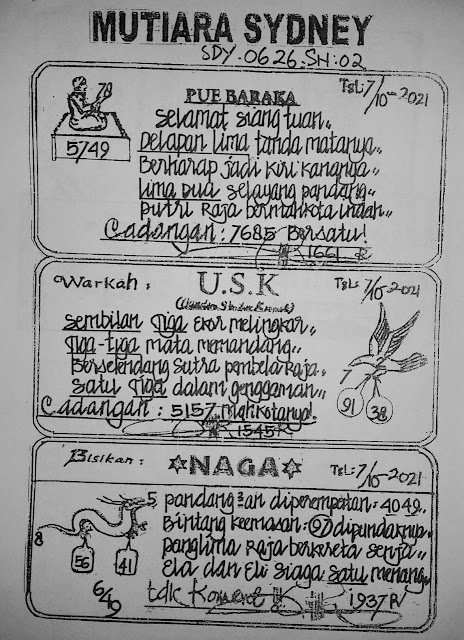 MUTIARA SYDNEY
SDY.0626.SN:02
PUE BARAKA
TgL: 7/10-2021
5/49
Selamat siang tuan
Delapan lima tanda matanya
Berharap jadi kiri kanannya
lima dua selayang pandang
putri Raja bermahkota indah
Cadangan: 7685 Bersatu!
1661 R
Warkah:
U.S.K
TgL: 7/10-2021
Sembilan tiga Ekor melingkar
tiga-tiga mata memandang
Berselendang sutra pembela Raja
satu tiga dalam genggaman
91 38
Cadangan: 5157 Mahkotanya!
1545 R
Bisikan:
NAGA
TgL: 7/10-2021
5
8
56 41
649
pandang²an diperempatan: 4049
Bintang keemasan: 97 dipundaknya
panglima Raja berkereta senja
Ela dan Eli siaga satu menang
tdk
1937 R